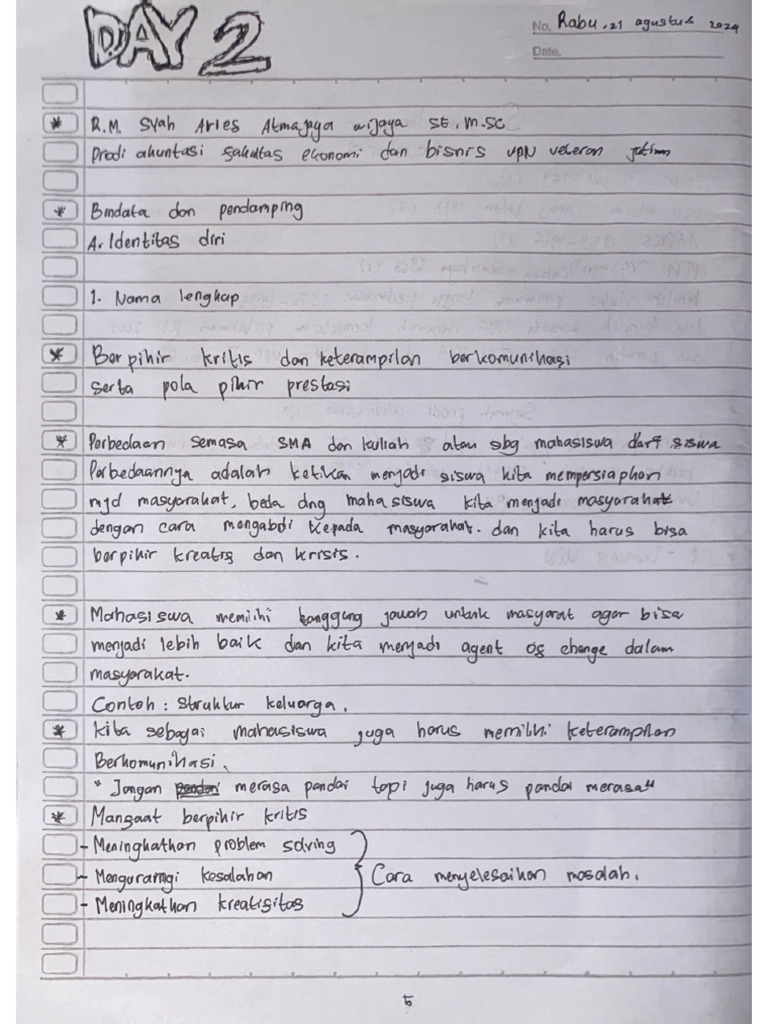 DAY 2
No. Rabu, 21 agustus 2024
Date.
* R.M. Syah Aries Atmajaya wijaya SE. M.SC
Prodi akuntasi fakultas ekonomi dan bisnis UPN veteran jatim
* Bindata dan pendamping
A. Identitas diri
1. Nama lengkap
* Berpikir kritis dan keterampilan berkomunikasi
serta pola pikir prestasi
* Perbedaan semasa SMA dan kuliah atau sbg mahasiswa dari siswa
Perbedaannya adalah ketika menjadi siswa kita mempersiapkan
mjd masyarakat, beda dng mahasiswa kita menjadi masyarakat
dengan cara mengabdi kepada masyarakat. dan kita harus bisa
berpikir kreatif dan krisis.
* Mahasiswa memiliki tanggung jawab untuk masyarat agar bisa
menjadi lebih baik dan kita menjadi agent of change dalam
masyarakat.
Contoh : Struktur keluarga.
* Kita sebagai mahasiswa juga harus memiliki keterampilan
Berkomunikasi.
" Jangan merasa pandai tapi juga harus pandai merasa"
* Manfaat berpikir kritis
- Meningkatkan problem solving
- Mengurangi kesalahan
Cara menyelesaikan masalah.
- Meningkatkan kreatifitas
5